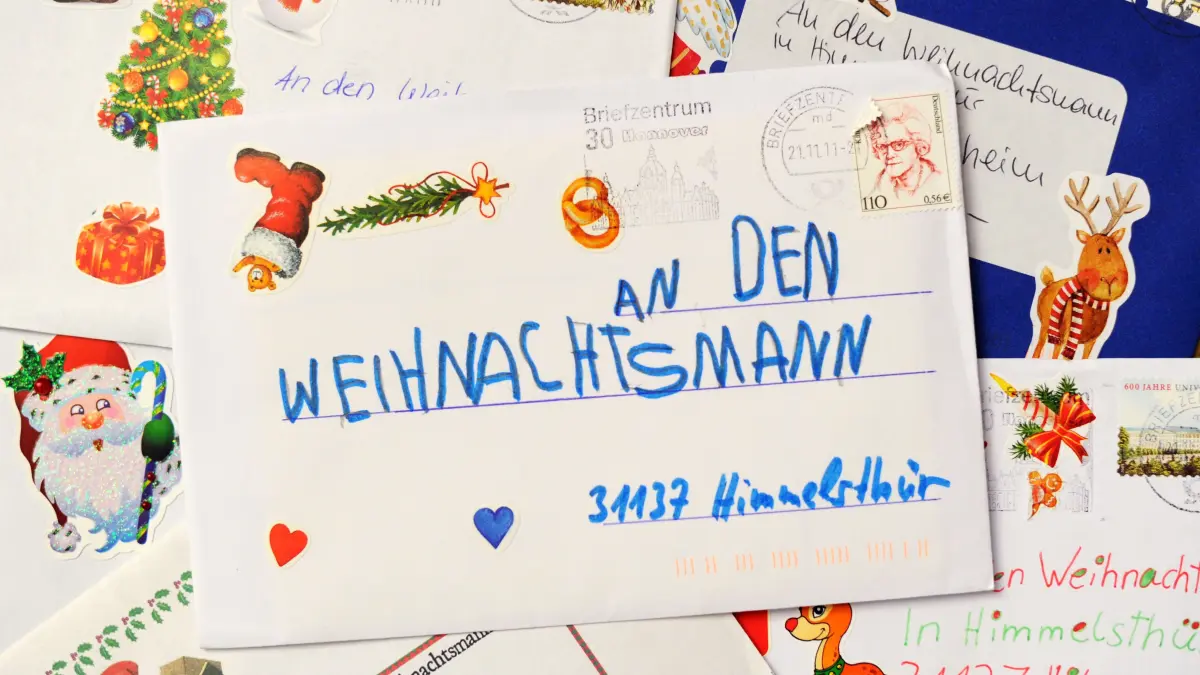 An den
An den Weihnachtsmann
in
Briefzentrum
30 Hannover
BRIEFZENT
md
21.11.11-2
Deutschland
110
0,56€
heim
AN DEN
WEIHNACHTSMANN
31137 Himmelsthür
600 JAHRE UNIV
riefzentrum
en Weihnacht
In Himmelsthü
31137
achtsmann